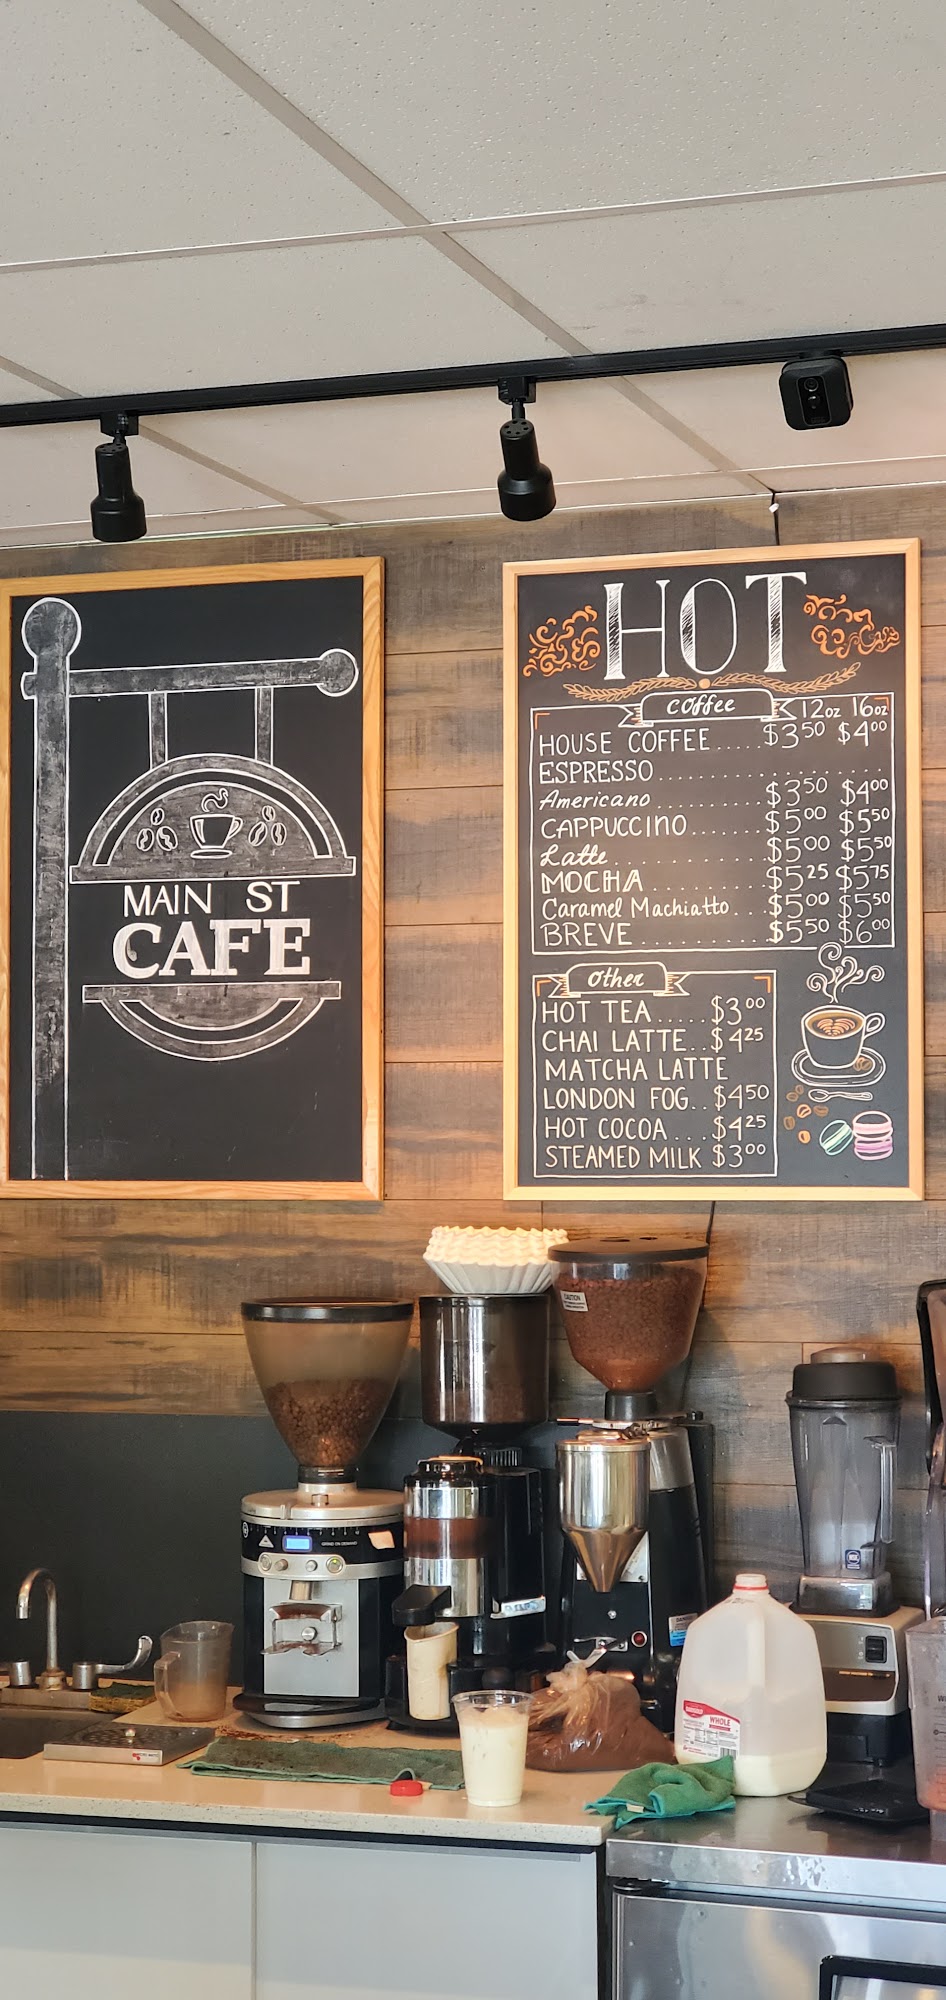 MAIN ST
CAFE
HOT
Coffee 12oz 16oz
HOUSE COFFEE.....$3⁵⁰ $4⁰⁰
ESPRESSO....................
Americano...........$3⁵⁰ $4⁰⁰
CAPPUCCINO.......$5⁰⁰ $5⁵⁰
Latte................$5⁰⁰ $5⁵⁰
MOCHA............$5²⁵ $5⁷⁵
Caramel Machiatto...$5⁰⁰ $5⁵⁰
BREVE............$5⁵⁰ $6⁰⁰
Other
HOT TEA.....$3⁰⁰
CHAI LATTE..$4²⁵
MATCHA LATTE
LONDON FOG..$4⁵⁰
HOT COCOA....$4²⁵
STEAMED MILK $3⁰⁰
CAUTION
WHOLE